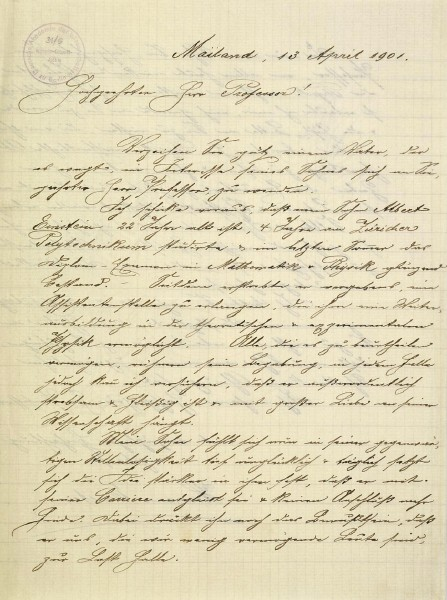 Mailand, 13 April 1901.
Hochgeehrter Herr Professor!
Verzeihen Sie gütigst einem Vater, der
es wagt, im Interesse seines Sohnes sich an Sie,
geehrter Herr Professor zu wenden.
Ich schicke voraus, daß mein Sohn Albert
Einstein 22 Jahre alt ist, 4 Jahre am Züricher
Polytechnikum studierte & im letzten Sommer das
Diplom-Examen in Mathematik & Physik glänzend
bestand. – Seitdem versuchte er vergebens, eine
Assistentenstelle zu erlangen, die ihm eine Weiter-
ausbildung in der theoretischen & experimentalen
Physik ermöglicht. Alle, die es zu beurtheilen
vermögen, rühmen seine Begabung, in jedem Falle
jedoch kann ich versichern, daß er außerordentlich
strebsam & fleißig ist & mit großer Liebe an seiner
Wissenschaft hängt.
Mein Sohn fühlt sich nun in seiner gegenwär-
tigen Stellenlosigkeit tief unglücklich & täglich setzt
sich die Idee stärker in ihm fest, daß er mit
seiner Carriere entgleist sei & keinen Anschluß mehr
finde. Dabei drückt ihn noch das Bewußtsein, daß
er uns, die wir wenig vermögende Leute sind,
zur Last falle.